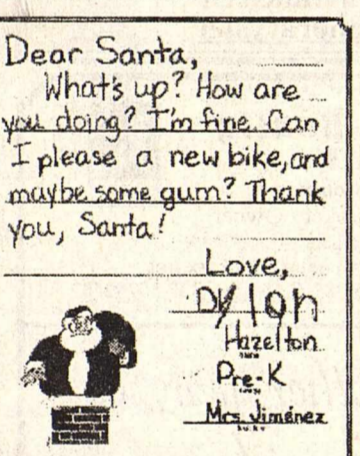 Dear Santa,
What's up? How are
you doing? I'm fine. Can
I please a new bike, and
maybe some gum? Thank
you, Santa!
Love,
Dylon
Hazelton
Pre-K
Mrs. Jiménez